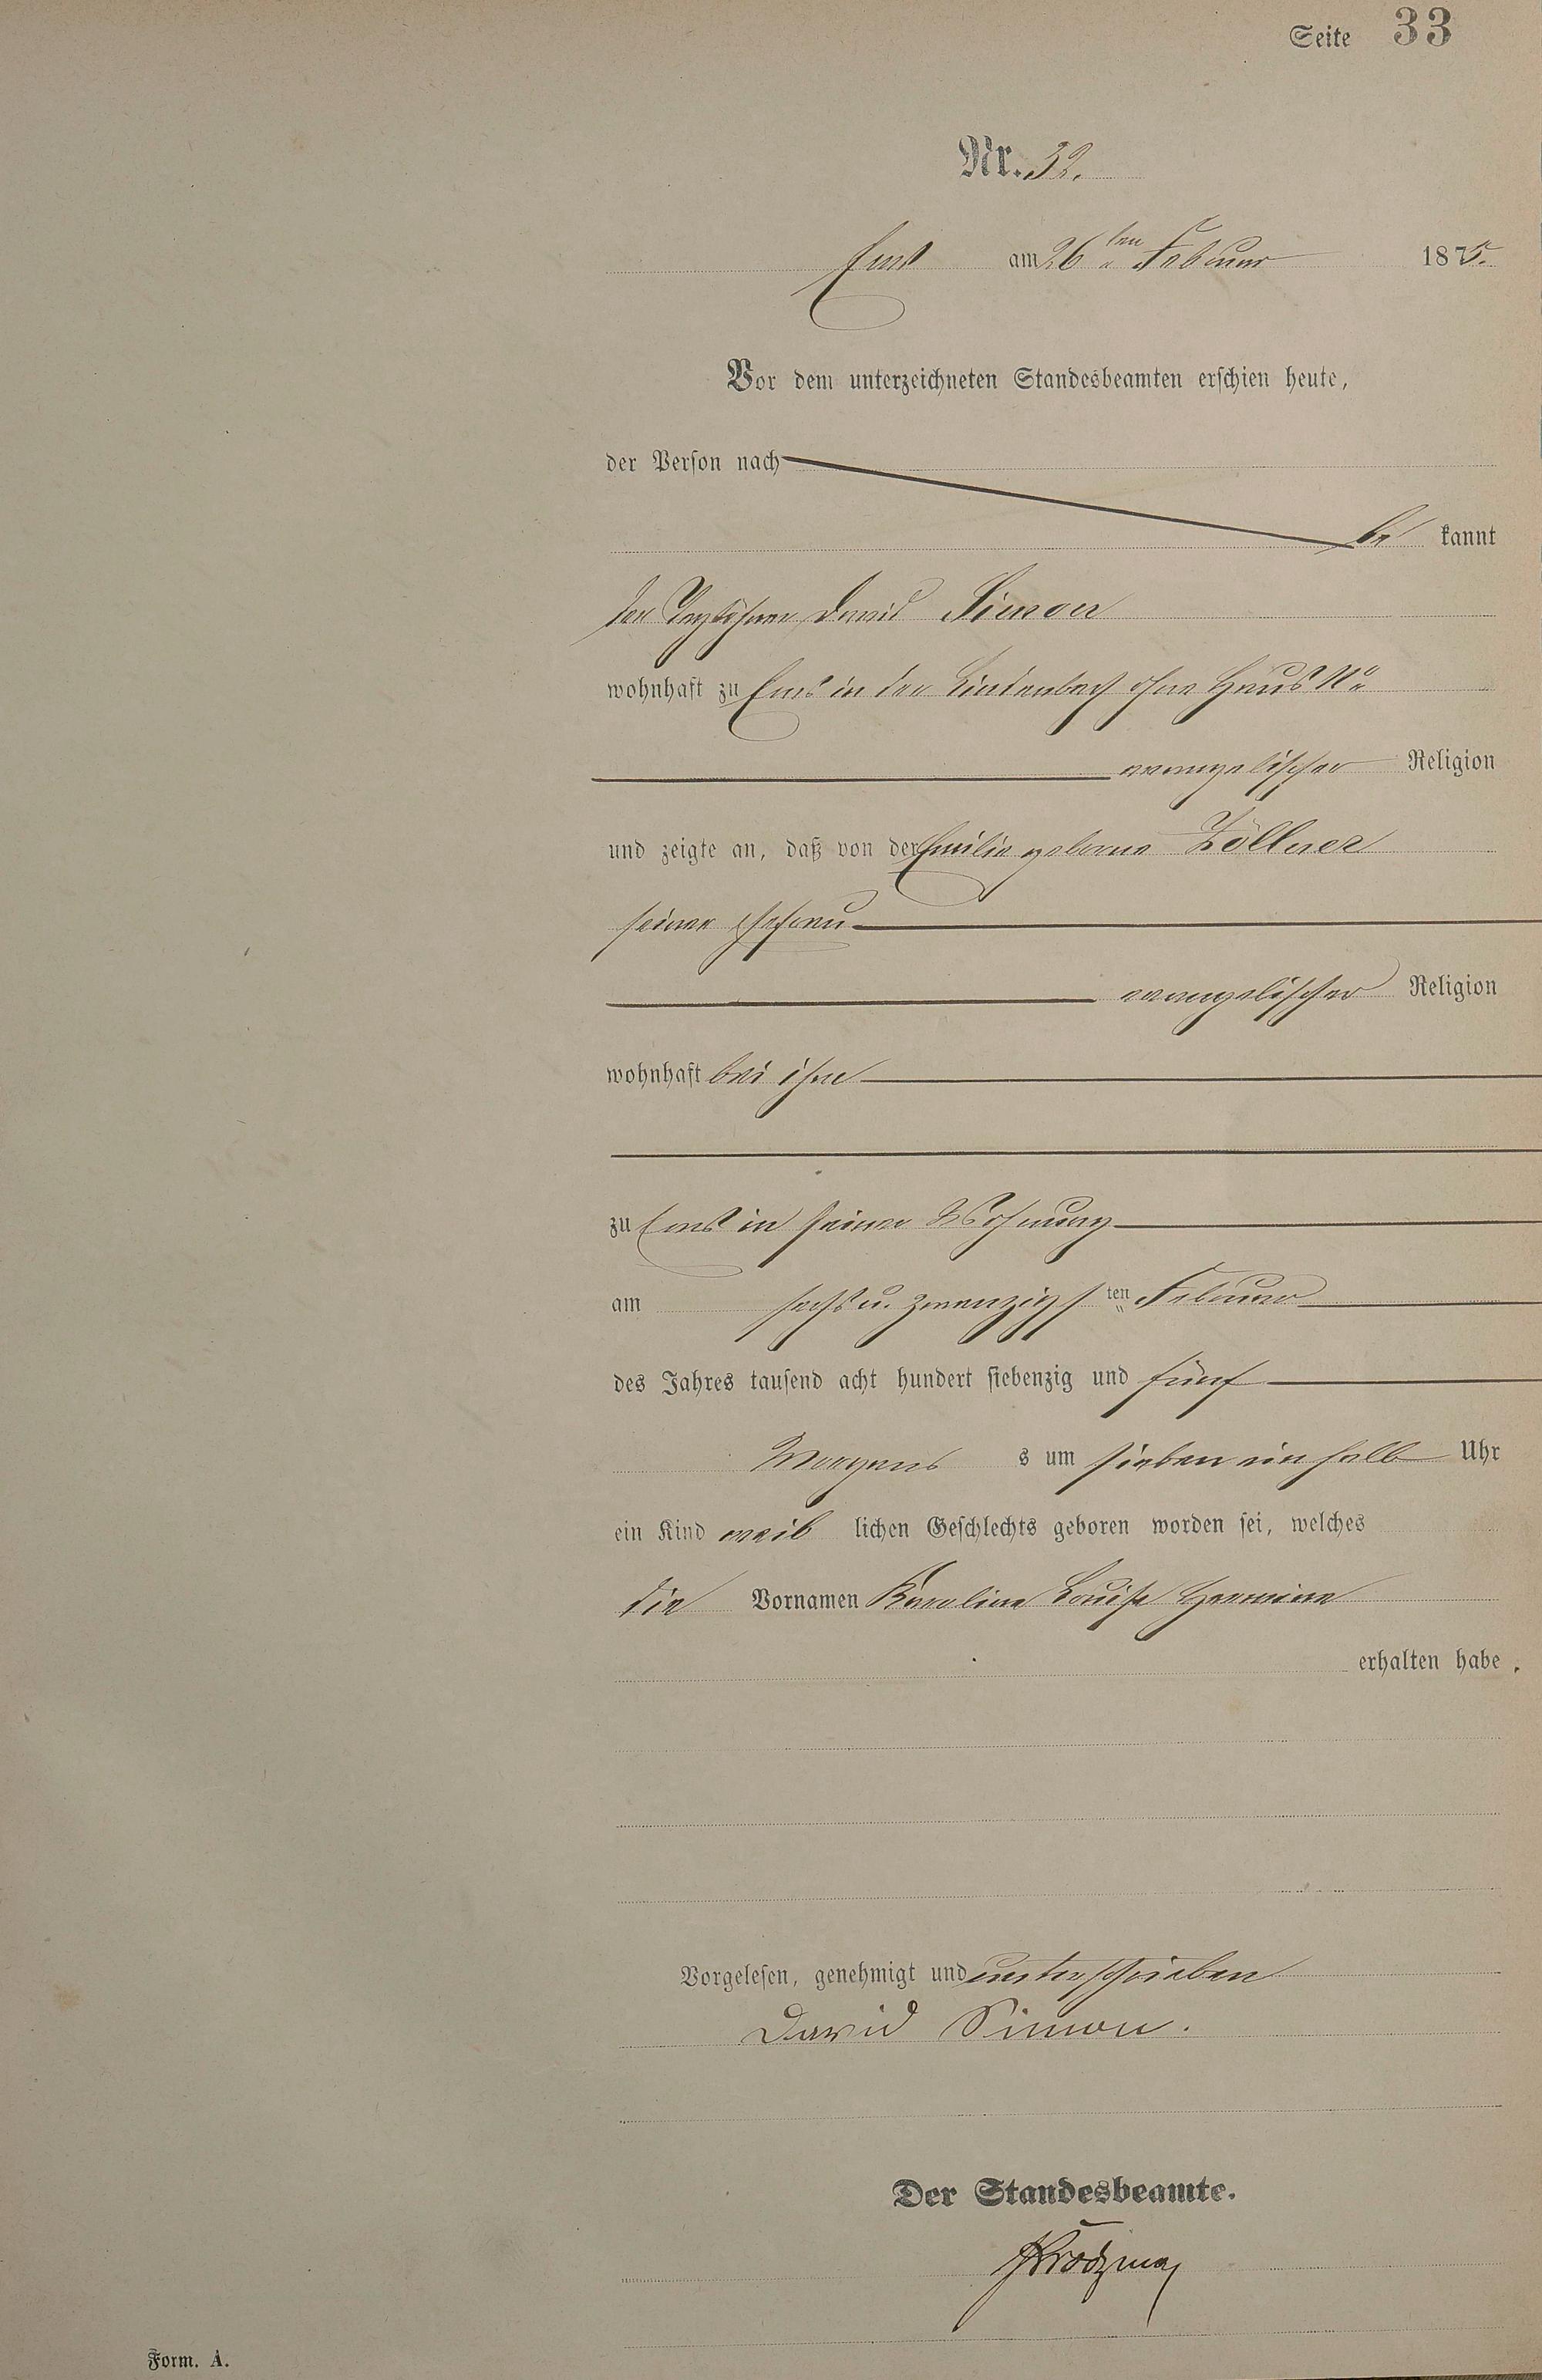 Seite 33
Nr. 32.
Ems am 26ten Februar 1875.
Vor dem unterzeichneten Standesbeamten erschien heute,
der Person nach
be kannt
der Taglöhner David Simon
wohnhaft zu Ems in der Lindenbach ohne Haus No
evangelischer Religion
und zeigte an, daß von der Emilie geborene Zöllner
seiner Ehefrau
evangelischer Religion
wohnhaft bei ihm
zu Ems in seiner Wohnung
am sechs u. zwanzigsten Februar
des Jahres tausend acht hundert siebenzig und fünf
Morgens s um sieben ein halb Uhr
ein Kind weib lichen Geschlechts geboren worden sei, welches
die Vornamen Karoline Louise Hermine
erhalten habe.
Vorgelesen, genehmigt und unterschrieben
David Simon.
Der Standesbeamte.
Form. A.